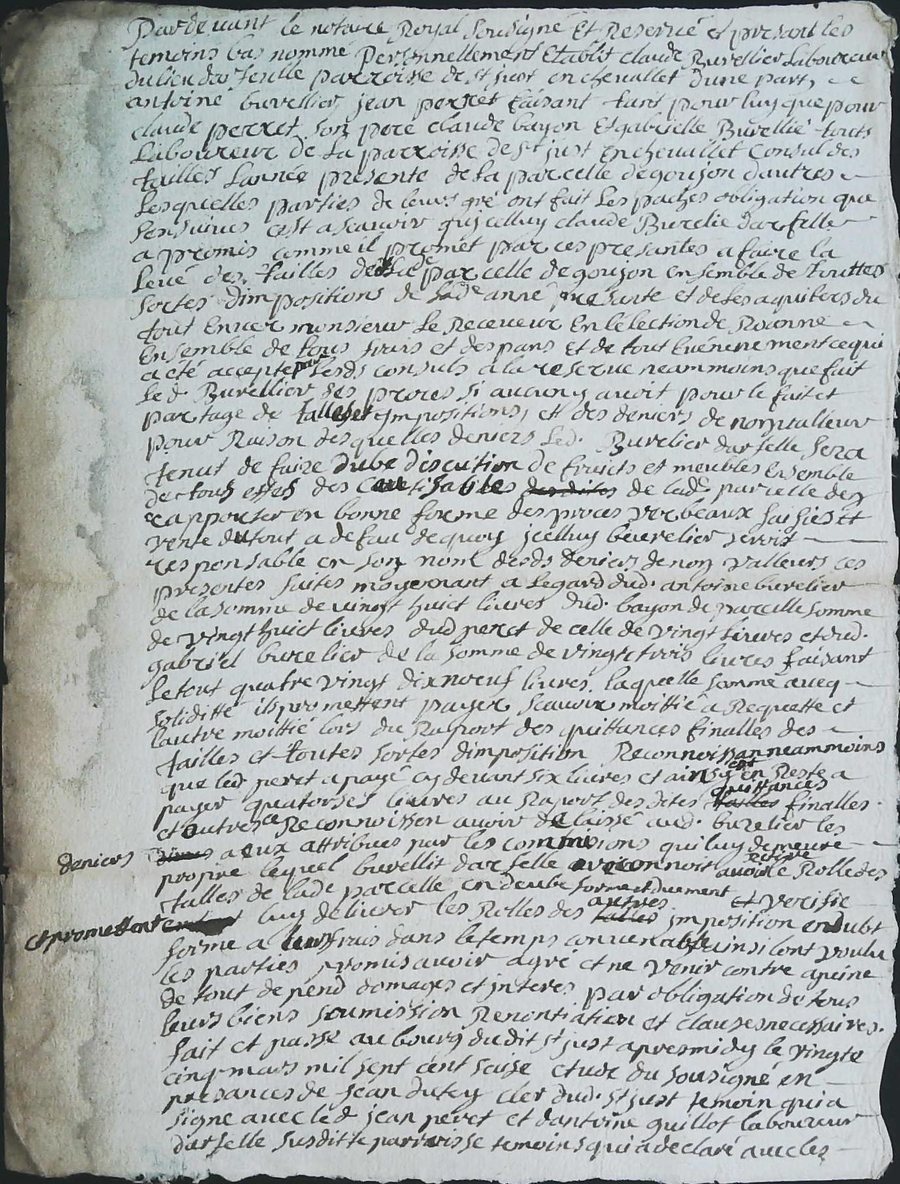 Pardevant le notaire Royal sousigné Et Reservé et presant les
temoins bas nommé Personnellement Etablit claude Burellier Laboureur
du lieu darfeulle parroisse de st just en chevallet dune part,
antoine burellier, jean perret faisant tant pour luy que pour
claude perret son pere claude bayon Et gabrielle Burellié touts
Laboureur de La parroisse de st just en chevallet Consul des
tailles Lannee presente de la parcelle degouzon dautres
Lesquelles parties de leurs gré ont fait Les paches obligation que
sensuives cest a scavoir quicelluy claude Burelie darfelle
a promis comme il promet par ces presantes a faire la
Levé des tailles de parcelle de gouzon ensemble de touttes
sortes dimpositions de lade anné presante et de les aquiters du
tout Enver monsieur Le Receveur En lelection de Roanne
Ensemble de tous frais et despans Et de tout Evenement ce qui
a été accepte par lesds consuls a la reserve neammoins que fait
Le d. Burellier des proces si aucuns avoit pour le fait et
partage de talles et impositions, et des deniers de non valleur
pour Raison desquelles deniers Led. Burelier darfelle sera
tenut de faire dube discution de fruits et meubles Ensemble
de tous effes des Cautisables desdites de lade parcelle den
rapporter en bonne forme des proces verbeaux saisies et
vente du tout a defau de quoy icelluy beurelier seroit
responsable en son nom desds deniers de non valleurs ces
presentes faites moyennant a Legard dud. antoine burelier
de la somme de vingt huict livres dud. bayon de pareelle somme
de vingt huict livres dud peret de celle de vingt livres et dud.
gabriel burelier de la somme de vingt trois livres faisant
Le tout quatre vingt dix noeuf livres, laquelle somme avecq
soliditté ils promettent payer scavoir moittié a Requette et
lautre moittié lors du Raport des quittances finalles des
tailles et toutes sortes dimposition Reconnoissan neammoins
que led peret a payé cy devant six livres et ainsy est en Reste a
payer quatorses livres au Raport des dites quittances tailles finalles
et autres Reconnoisson avoir delaissé aud. burelier les
deniers a eux attribues par les commitions qui luy demeure
propre lequel burellit darfelle avoir receue le Rolle des
talles de lade parcelle en deube forme et duement Et verifie
et promettant luy delivrer les Rolles des autres talles imposition en dubt
forme a leurs frais dans le temps convenable ainsi lont voulu
les parties promis avoir agré et ne venir contre a peine
de tout depend domages et interes par obligation de tous
leurs biens soumission Renontiation et clauses necessaires.
fait et passé au bourg dudit st just apres midy le vingte
cinq mars mil sept cent saise etude du sousigné en
presances de Jean dutey clerc dud. st just temoin qui a
signe avec led jean peret et dantoine guillot laboureur
darfelle susditte parroisse temoins qui a declaré avec les